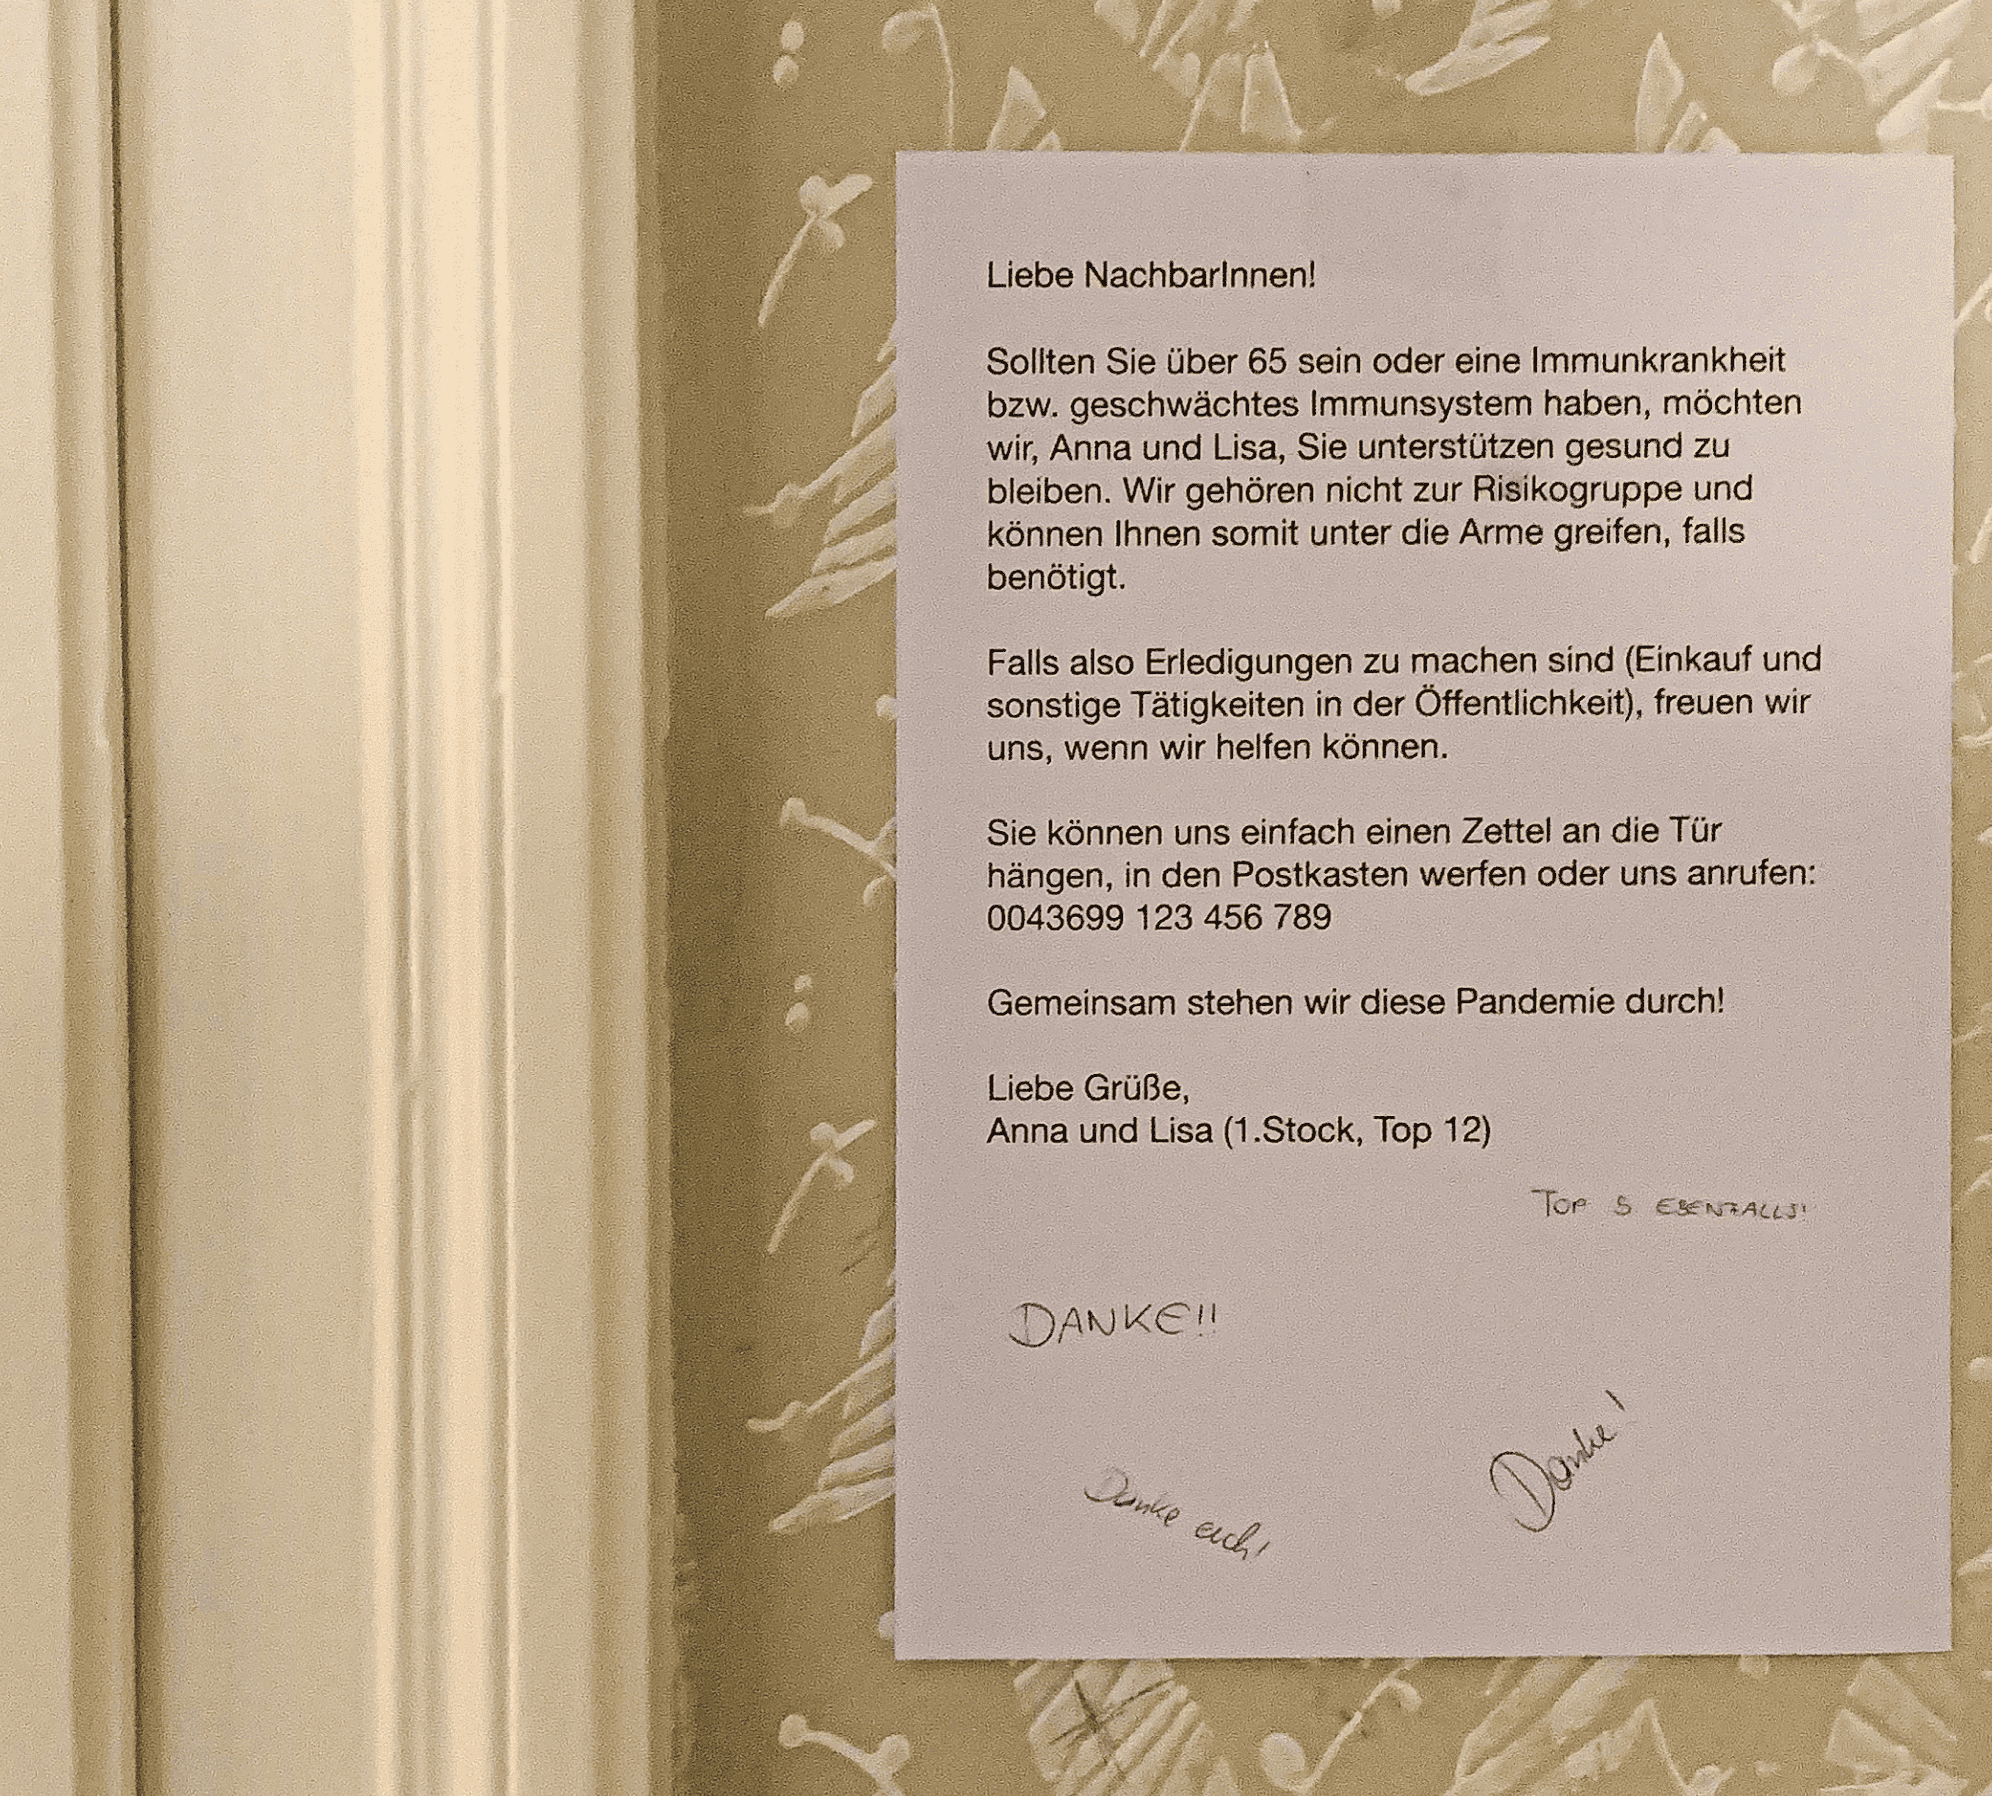 Liebe NachbarInnen!
Sollten Sie über 65 sein oder eine Immunkrankheit
bzw. geschwächtes Immunsystem haben, möchten
wir, Anna und Lisa, Sie unterstützen gesund zu
bleiben. Wir gehören nicht zur Risikogruppe und
können Ihnen somit unter die Arme greifen, falls
benötigt.
Falls also Erledigungen zu machen sind (Einkauf und
sonstige Tätigkeiten in der Öffentlichkeit), freuen wir
uns, wenn wir helfen können.
Sie können uns einfach einen Zettel an die Tür
hängen, in den Postkasten werfen oder uns anrufen:
0043699 123 456 789
Gemeinsam stehen wir diese Pandemie durch!
Liebe Grüße,
Anna und Lisa (1.Stock, Top 12)
TOP 5 EBENFALLS!
DANKE!!
Danke!
Danke euch!